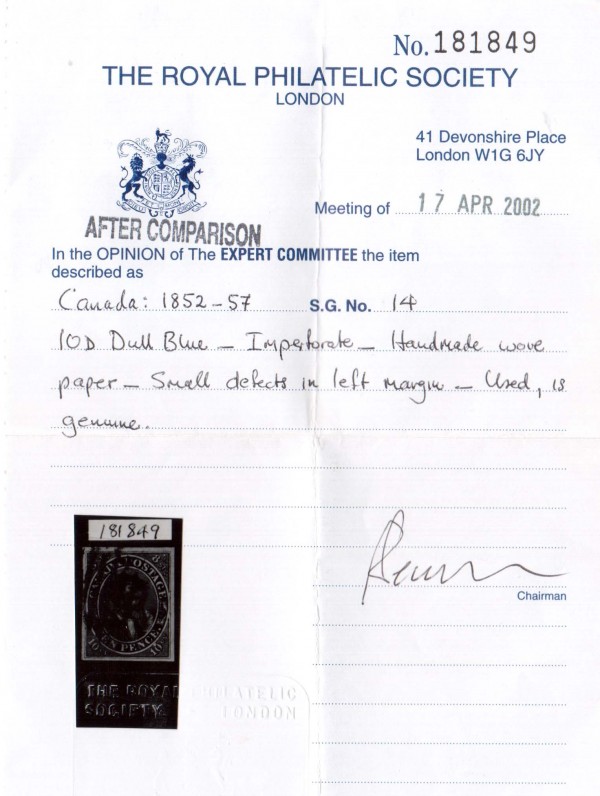 No. 181849
THE ROYAL PHILATELIC SOCIETY
LONDON
41 Devonshire Place
London W1G 6JY
Meeting of 17 APR 2002
AFTER COMPARISON
In the OPINION of The EXPERT COMMITTEE the item
described as
Canada: 1852-57 S.G. No. 14
10D Dull Blue - Imperforate - Handmade wove
paper - Small defects in left margin - Used, is
genuine.
181849
CANADA POSTAGE
TEN PENCE
Chairman
THE ROYAL PHILATELIC
SOCIETY LONDON